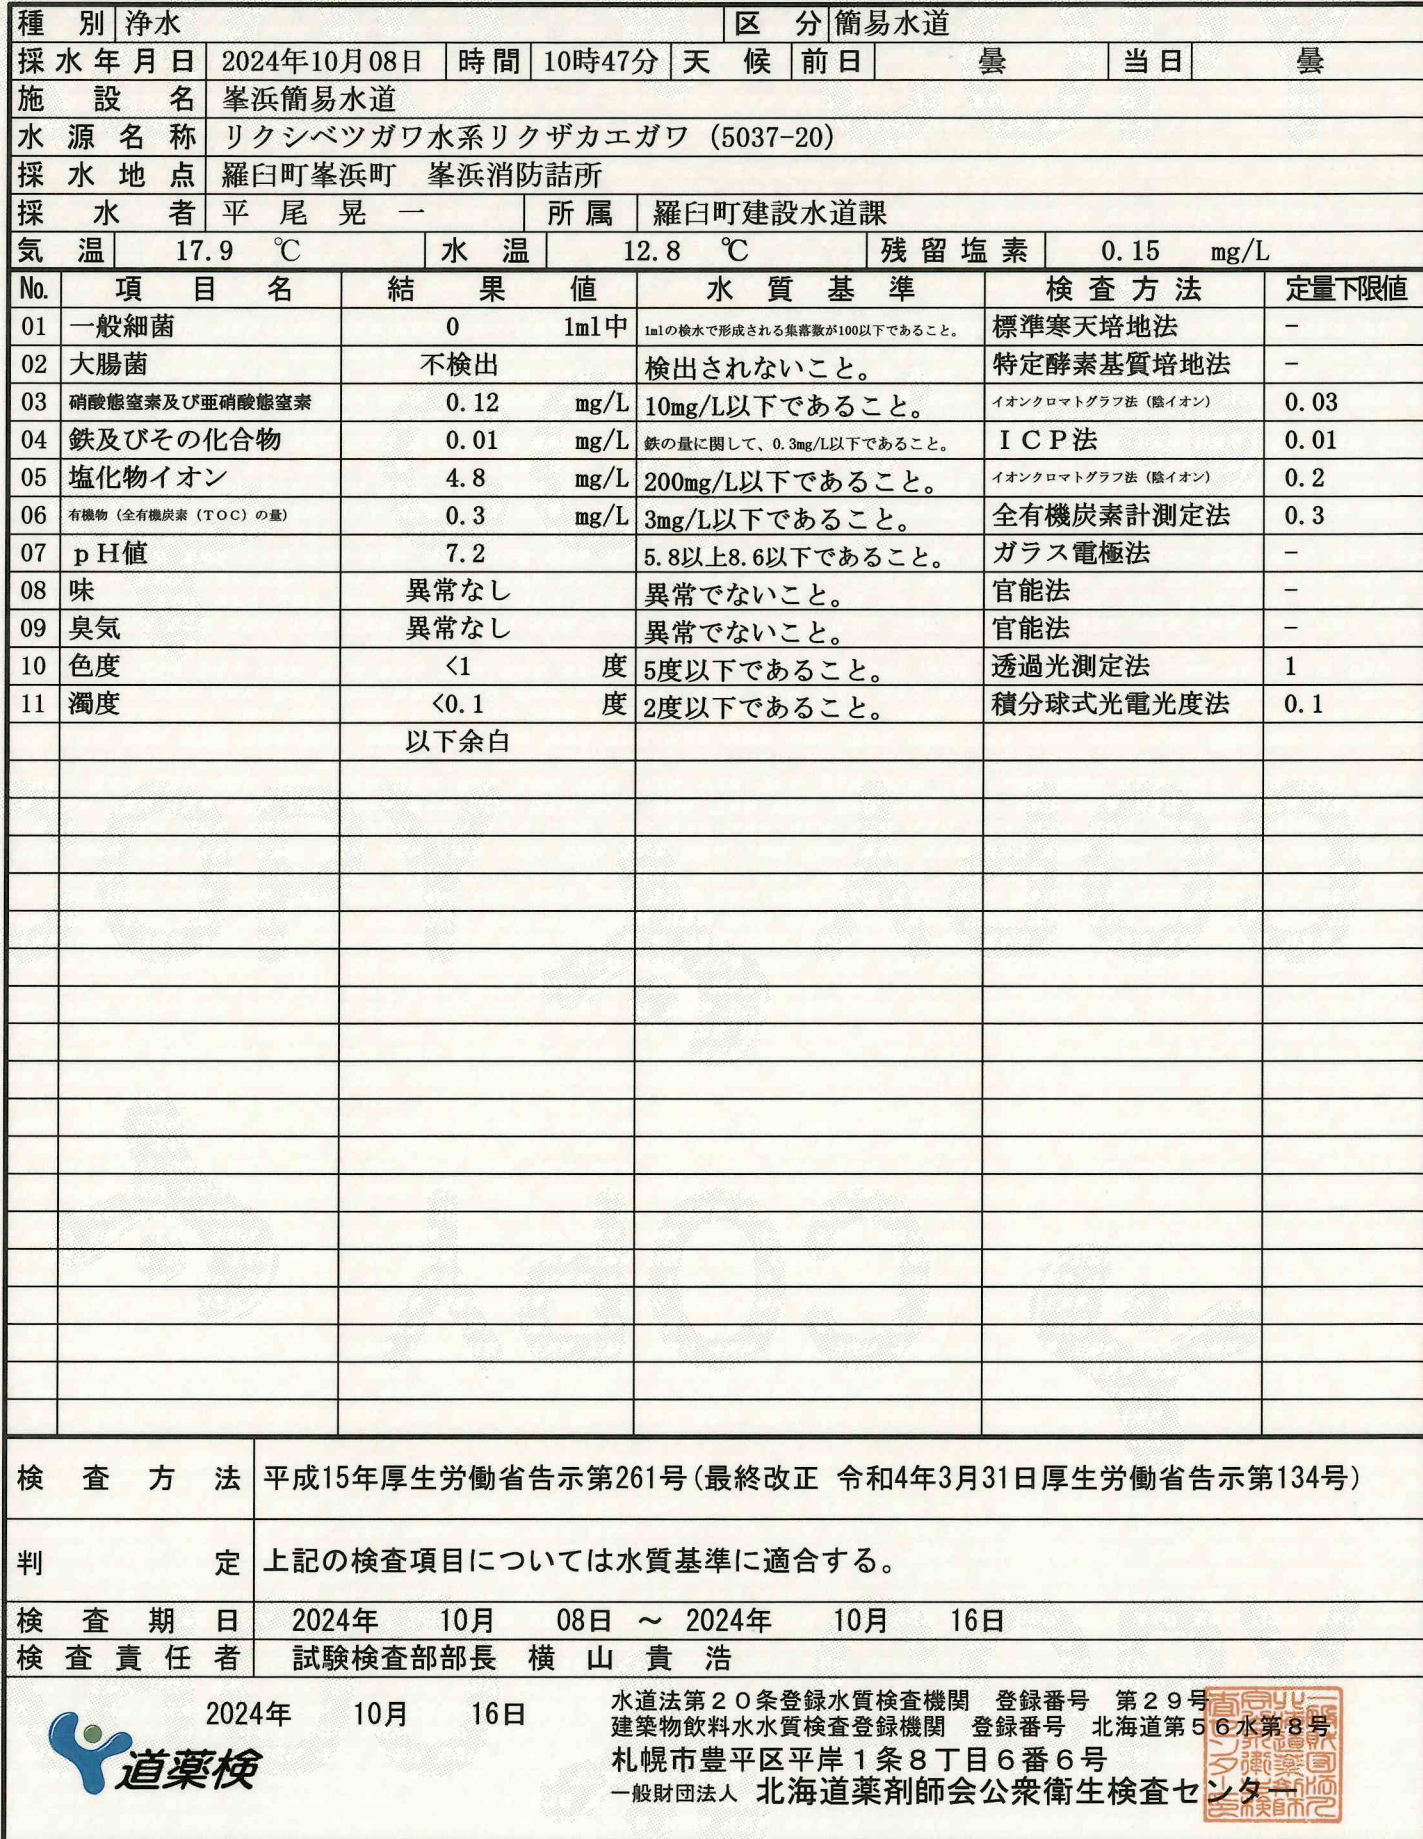 種 別 浄水 区 分 簡易水道
採水年月日 2024年10月08日 時間 10時47分 天 候 前日 曇 当日 曇
施 設 名 峯浜簡易水道
水 源 名 称 リクシベツガワ水系リクザカエガワ (5037-20)
採 水 地 点 羅臼町峯浜町 峯浜消防詰所
採 水 者 平 尾 晃 一 所属 羅臼町建設水道課
気 温 17.9 ℃ 水 温 12.8 ℃ 残留塩素 0.15 mg/L
No. 項 目 名 結 果 値 水 質 基 準 検 査 方 法 定量下限値
01 一般細菌 0 1ml中 1mlの検水で形成される集落数が100以下であること。 標準寒天培地法 -
02 大腸菌 不検出 検出されないこと。 特定酵素基質培地法 -
03 硝酸態窒素及び亜硝酸態窒素 0.12 mg/L 10mg/L以下であること。 イオンクロマトグラフ法(陰イオン) 0.03
04 鉄及びその化合物 0.01 mg/L 鉄の量に関して、0.3mg/L以下であること。 ICP法 0.01
05 塩化物イオン 4.8 mg/L 200mg/L以下であること。 イオンクロマトグラフ法(陰イオン) 0.2
06 有機物(全有機炭素(TOC)の量) 0.3 mg/L 3mg/L以下であること。 全有機炭素計測定法 0.3
07 pH値 7.2 5.8以上8.6以下であること。 ガラス電極法 -
08 味 異常なし 異常でないこと。 官能法 -
09 臭気 異常なし 異常でないこと。 官能法 -
10 色度 <1 度 5度以下であること。 透過光測定法 1
11 濁度 <0.1 度 2度以下であること。 積分球式光電光度法 0.1
以下余白
検 査 方 法 平成15年厚生労働省告示第261号(最終改正 令和4年3月31日厚生労働省告示第134号)
判 定 上記の検査項目については水質基準に適合する。
検 査 期 日 2024年 10月 08日 ~ 2024年 10月 16日
検 査 責 任 者 試験検査部部長 横 山 貴 浩
2024年 10月 16日
道薬検
水道法第20条登録水質検査機関 登録番号 第29号
建築物飲料水水質検査登録機関 登録番号 北海道第56水第8号
札幌市豊平区平岸1条8丁目6番6号
一般財団法人 北海道薬剤師会公衆衛生検査センター